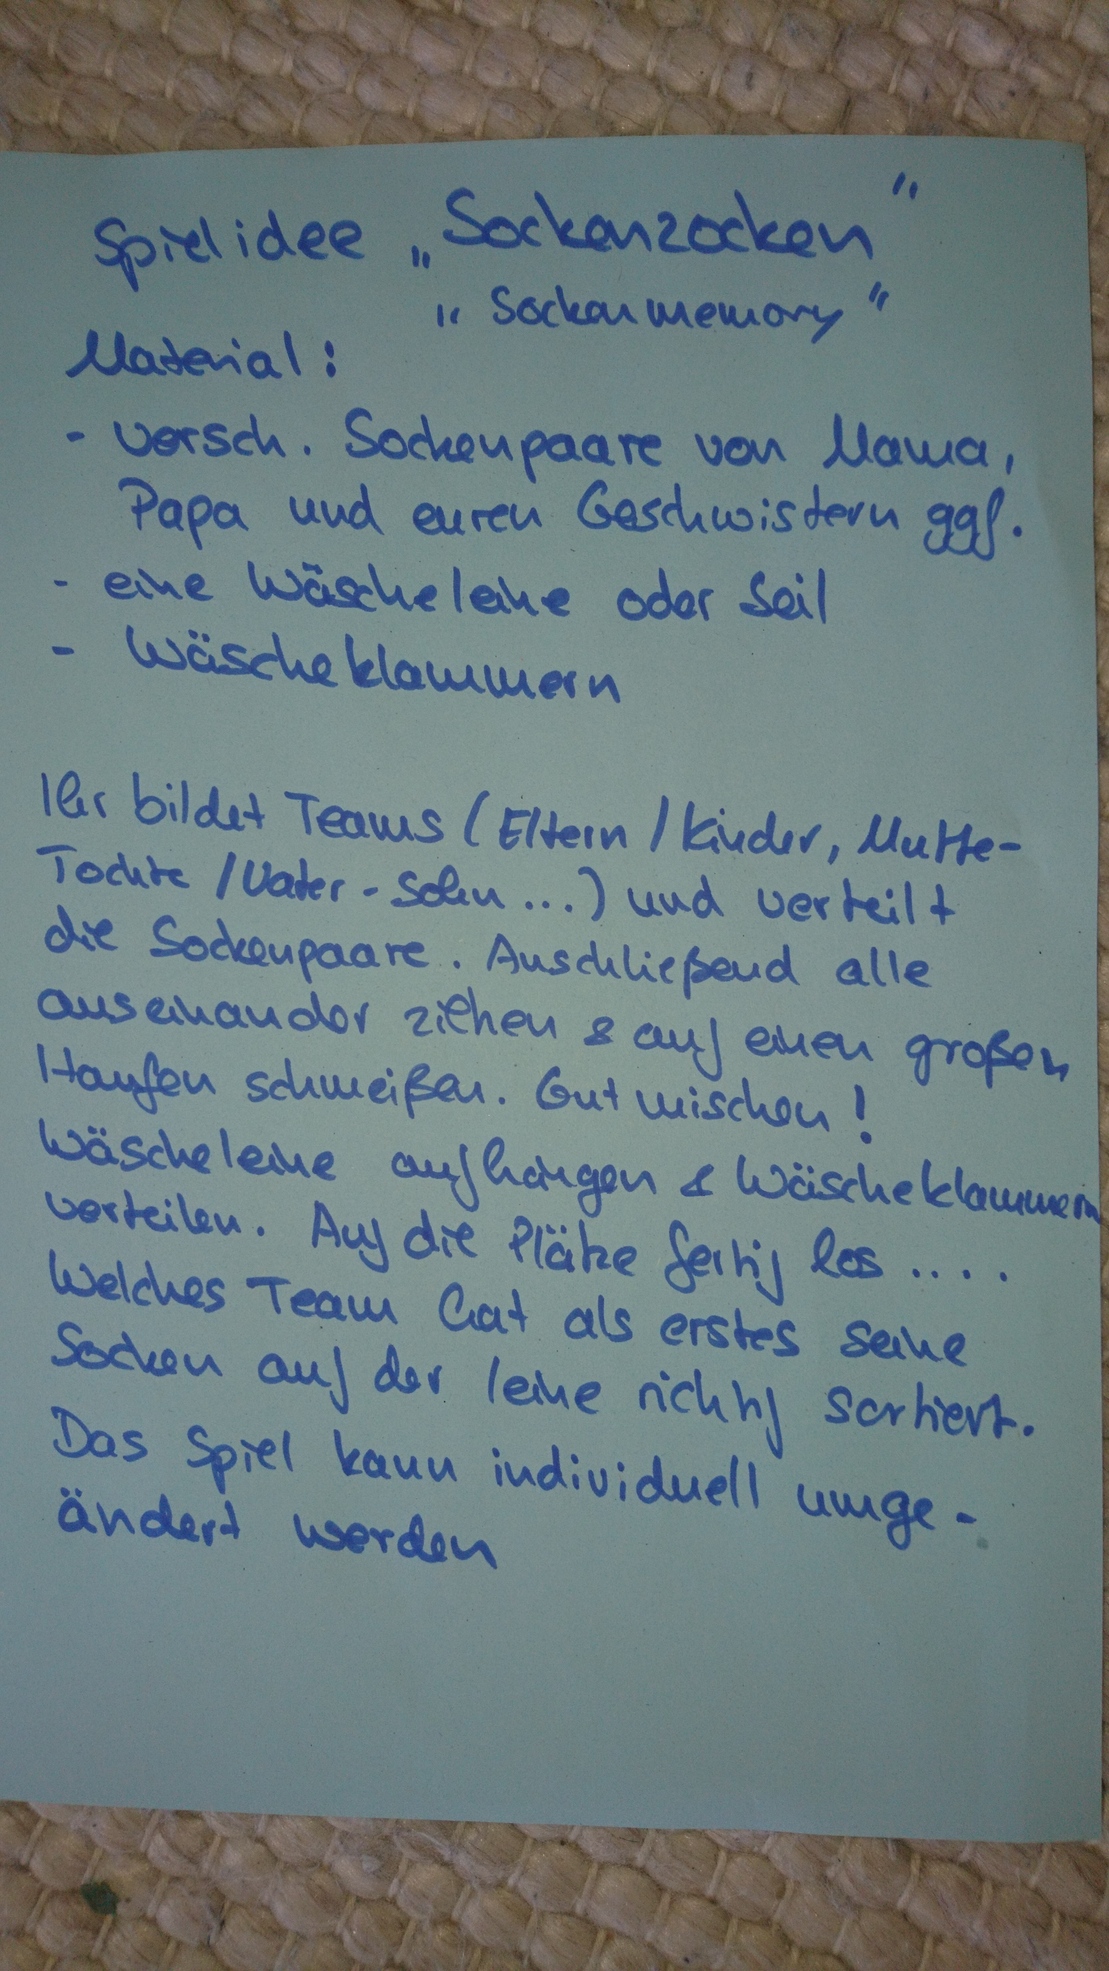 Spielidee „Sockenzocken"
"Sockenmemory"
Material:
- versch. Sockenpaare von Mama,
Papa und euren Geschwistern ggf.
- eine Wäscheleine oder Seil
- Wäscheklammern
Ihr bildet Teams (Eltern/Kinder, Mutter-
Tochter/Vater-Sohn...) und verteilt
die Sockenpaare. Anschließend alle
auseinander ziehen & auf einen großen
Haufen schmeißen. Gut mischen!
Wäscheleine aufhängen & Wäscheklammern
verteilen. Auf die Plätze fertig los....
Welches Team hat als erstes seine
Socken auf der Leine richtig sortiert.
Das Spiel kann individuell umge-
ändert werden